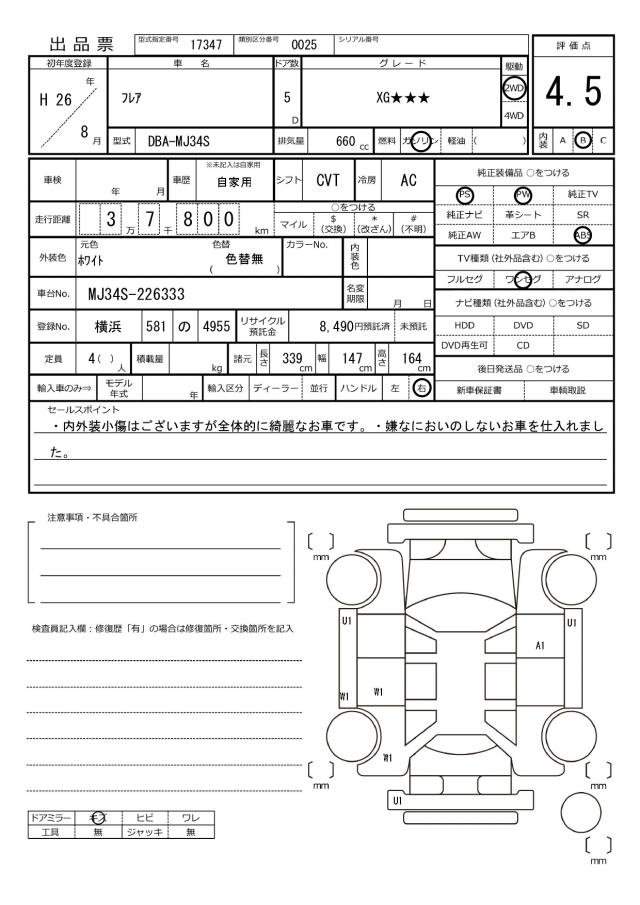 出品票 型式指定番号 17347 類別区分番号 0025 シリアル番号
評価点
4.5
内装 A B C
初年度登録 車名 ドア数 グレード 駆動
H 26 年 8 月 フレア 5 D XG★★★ 2WD 4WD
型式 DBA-MJ34S 排気量 660 cc 燃料 ガソリン 軽油 ( )
車検 年 月 車歴 ※未記入は自家用 自家用 シフト CVT 冷房 AC
走行距離 3 万 7 千 8 0 0 km ○をつける
マイル $ (交換) * (改ざん) # (不明)
外装色 元色 ホワイト 色替 ( 色替無 ) カラーNo. 内装色
車台No. MJ34S-226333 名変期限 月 日
登録No. 横浜 581 の 4955 リサイクル預託金 8,490円預託済 未預託
定員 4( ) 人 積載量 kg 諸元 長さ 339 cm 幅 147 cm 高さ 164 cm
輸入車のみ⇒ モデル年式 年 輸入区分 ディーラー 並行 ハンドル 左 右
純正装備品 ○をつける
PS PW 純正TV
純正ナビ 革シート SR
純正AW エアB ABS
TV種類 (社外品含む) ○をつける
フルセグ ワンセグ アナログ
ナビ種類 (社外品含む) ○をつける
HDD DVD SD
DVD再生可 CD
後日発送品 ○をつける
新車保証書 車輌取説
セールスポイント
・内外装小傷はございますが全体的に綺麗なお車です。・嫌なにおいのしないお車を仕入れまし
た。
注意事項・不具合箇所
検査員記入欄：修復歴「有」の場合は修復箇所・交換箇所を記入
mm
mm
U1
U1
A1
W1
W1
W1
mm
mm
U1
mm
ドアミラー キズ ヒビ ワレ
工具 無 ジャッキ 無